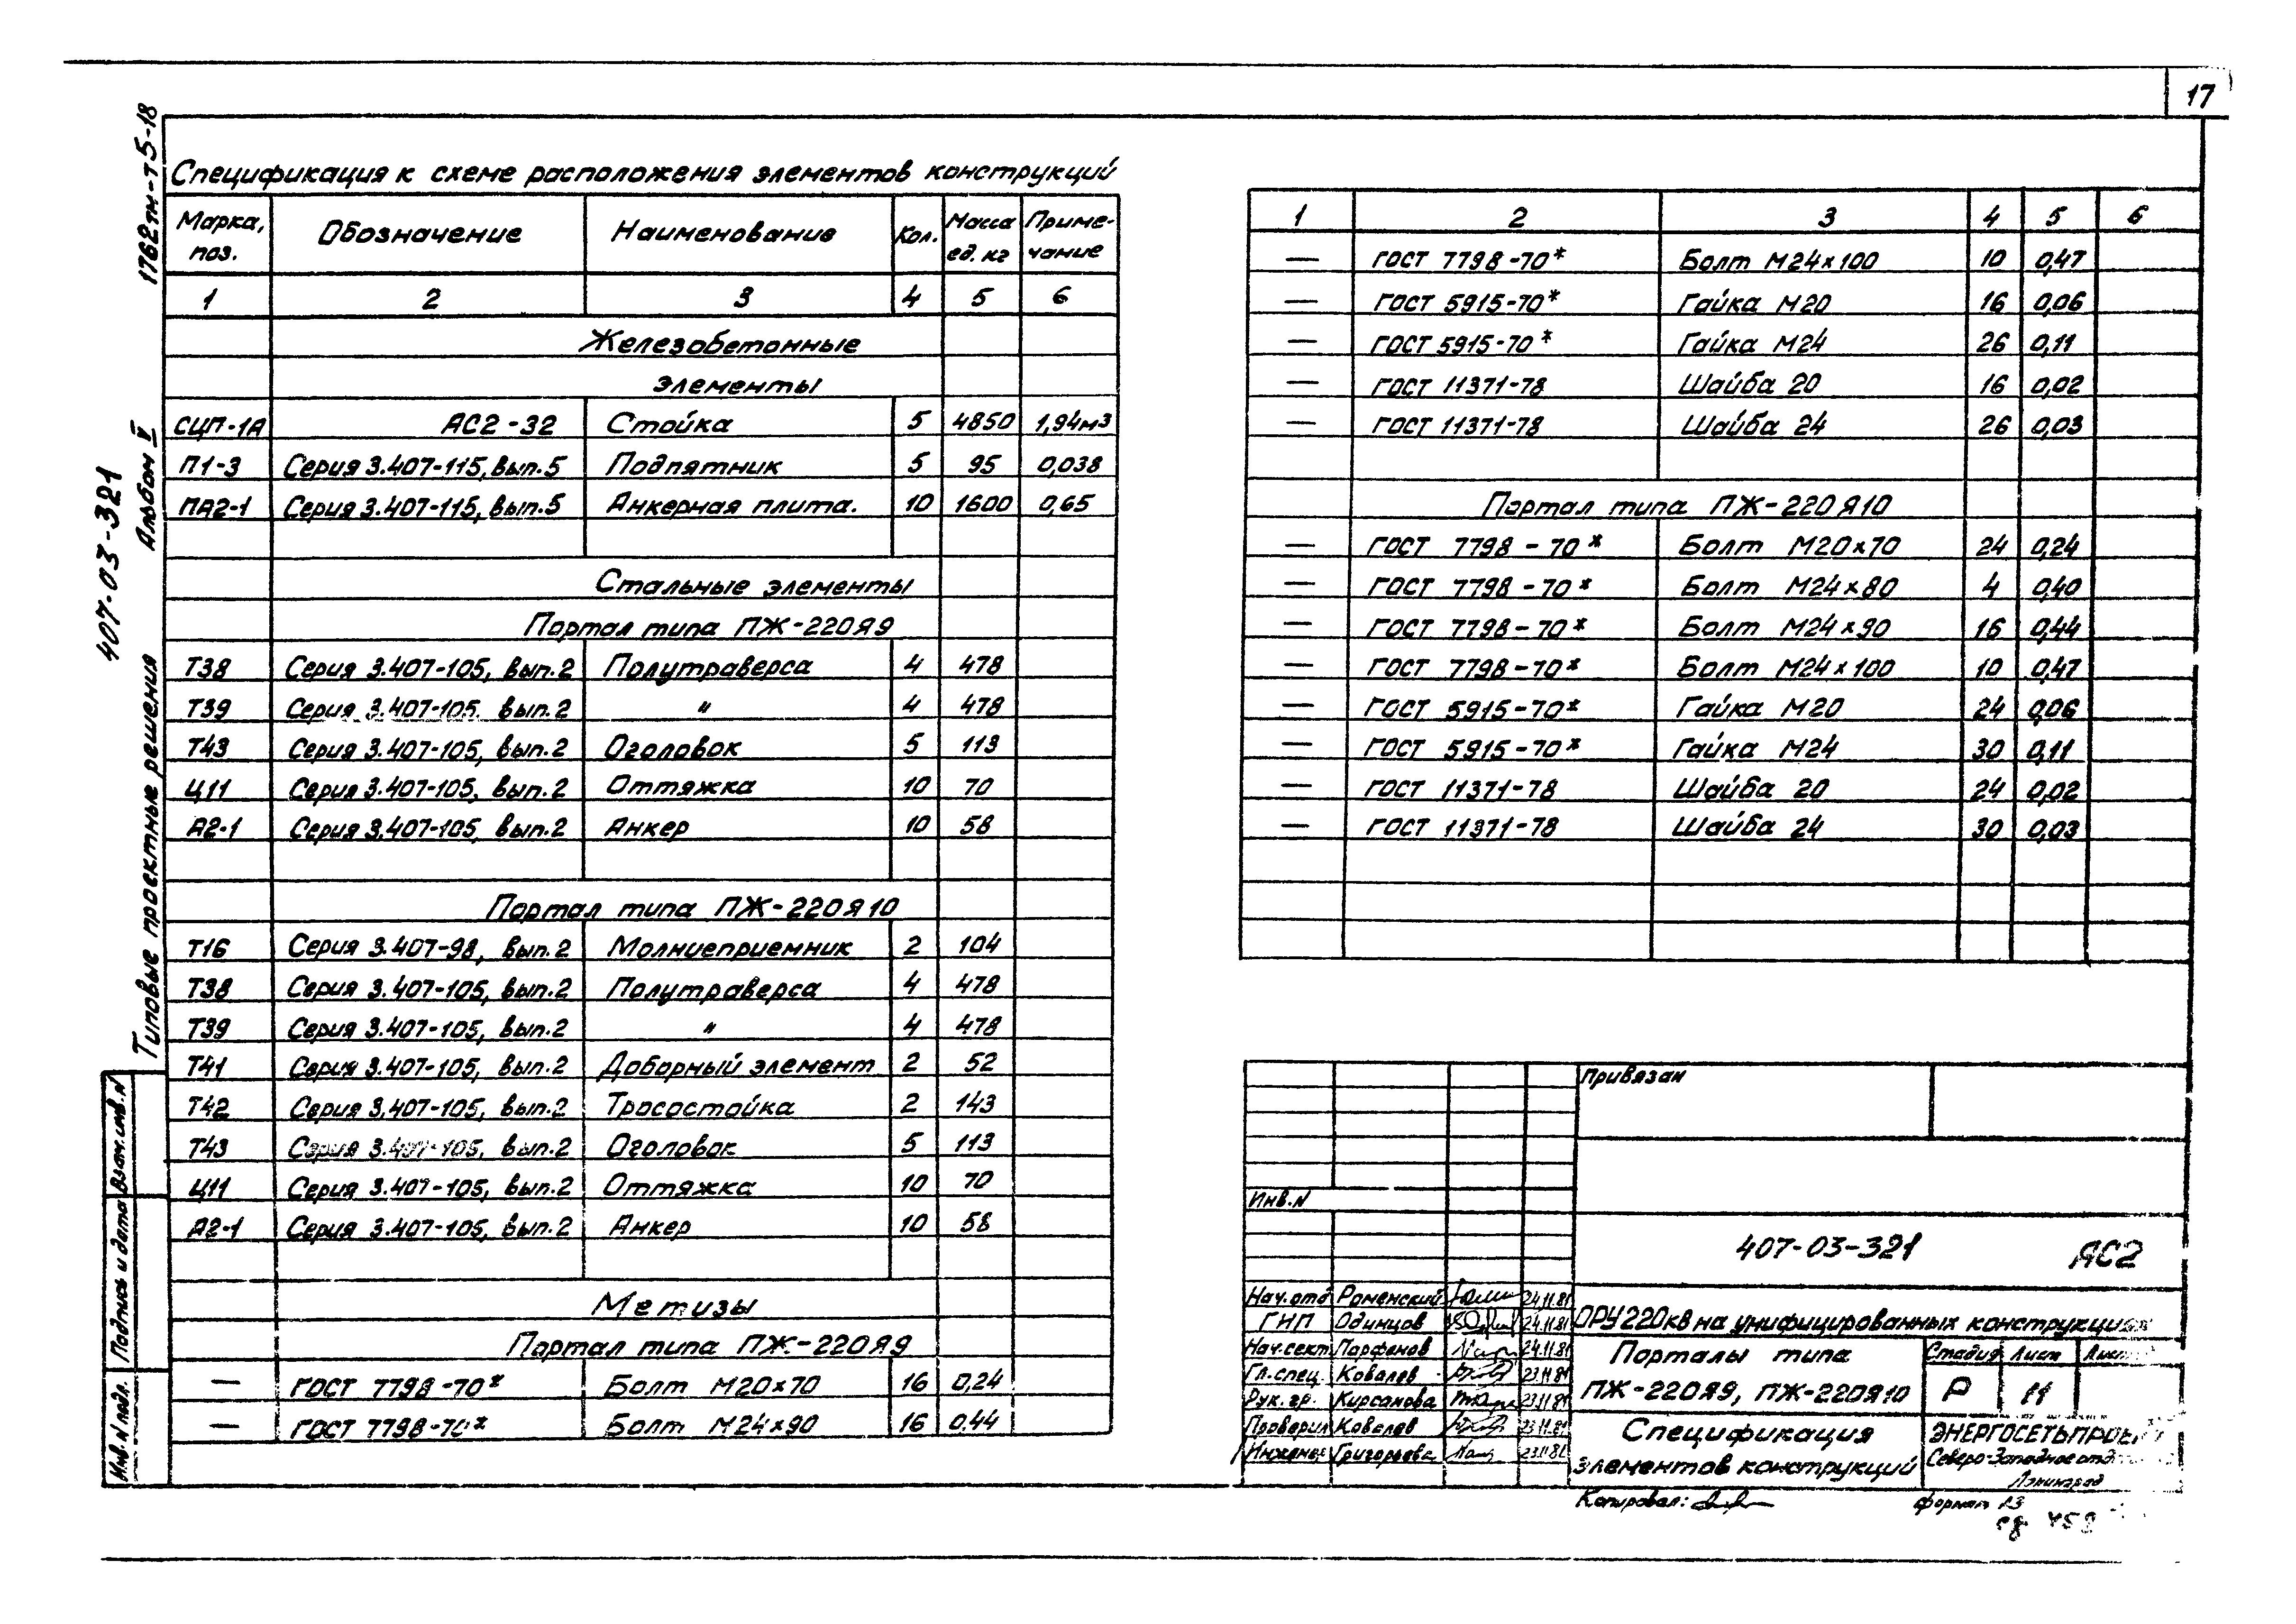 17
1762тм-т5-18
407-03-321
Альбом V
Типовые проектные решения
Взам.инв.N
Подпись и дата
Инв.N подл.
Спецификация к схеме расположения элементов конструкций
Марка, поз. Обозначение Наименование Кол. Масса ед. кг Приме-чание
1 2 3 4 5 6
Железобетонные
элементы
СЦП-1А АС2-32 Стойка 5 4850 1,94м3
П1-3 Серия 3.407-115, вып.5 Подпятник 5 95 0,038
ПА2-1 Серия 3.407-115, вып.5 Анкерная плита. 10 1600 0,65
Стальные элементы
Портал типа ПЖ-220Я9
Т38 Серия 3.407-105, вып.2 Полутраверса 4 478
Т39 Серия 3.407-105, вып.2 " 4 478
Т43 Серия 3.407-105, вып.2 Оголовок 5 113
Ц11 Серия 3.407-105, вып.2 Оттяжка 10 70
А2-1 Серия 3.407-105, вып.2 Анкер 10 58
Портал типа ПЖ-220Я10
Т16 Серия 3.407-98, вып.2 Молниеприемник 2 104
Т38 Серия 3.407-105, вып.2 Полутраверса 4 478
Т39 Серия 3.407-105, вып.2 " 4 478
Т41 Серия 3.407-105, вып.2 Доборный элемент 2 52
Т42 Серия 3.407-105, вып.2 Тросостойка 2 143
Т43 Серия 3.407-105, вып.2 Оголовок 5 113
Ц11 Серия 3.407-105, вып.2 Оттяжка 10 70
А2-1 Серия 3.407-105, вып.2 Анкер 10 58
Метизы
Портал типа ПЖ-220Я9
— ГОСТ 7798-70* Болт М20х70 16 0,24
— ГОСТ 7798-70* Болт М24х90 16 0,44
1 2 3 4 5 6
— ГОСТ 7798-70* Болт М24х100 10 0,47
— ГОСТ 5915-70* Гайка М20 16 0,06
— ГОСТ 5915-70* Гайка М24 26 0,11
— ГОСТ 11371-78 Шайба 20 16 0,02
— ГОСТ 11371-78 Шайба 24 26 0,03
Портал типа ПЖ-220Я10
— ГОСТ 7798-70* Болт М20х70 24 0,24
— ГОСТ 7798-70* Болт М24х80 4 0,40
— ГОСТ 7798-70* Болт М24х90 16 0,44
— ГОСТ 7798-70* Болт М24х100 10 0,47
— ГОСТ 5915-70* Гайка М20 24 0,06
— ГОСТ 5915-70* Гайка М24 30 0,11
— ГОСТ 11371-78 Шайба 20 24 0,02
— ГОСТ 11371-78 Шайба 24 30 0,03
Привязан
Инв.N
407-03-321 АС2
Нач.отд Роменский 24.11.81
ГИП Одинцов 24.11.81
Нач.сект Парфенов 24.11.81
Гл.спец. Ковалев 23.11.81
Рук.гр. Кирсанова 23.11.81
Проверил Ковалев 23.11.81
Инженер Григорьева 23.11.81
ОРУ 220кв на унифицированных конструкциях
Порталы типа
ПЖ-220Я9, ПЖ-220Я10
Стадия Лист
Р 11
Спецификация
элементов конструкций
ЭНЕРГОСЕТЬПРОЕКТ
Северо-Западное отд
Ленинград
Копировал:
формат А3